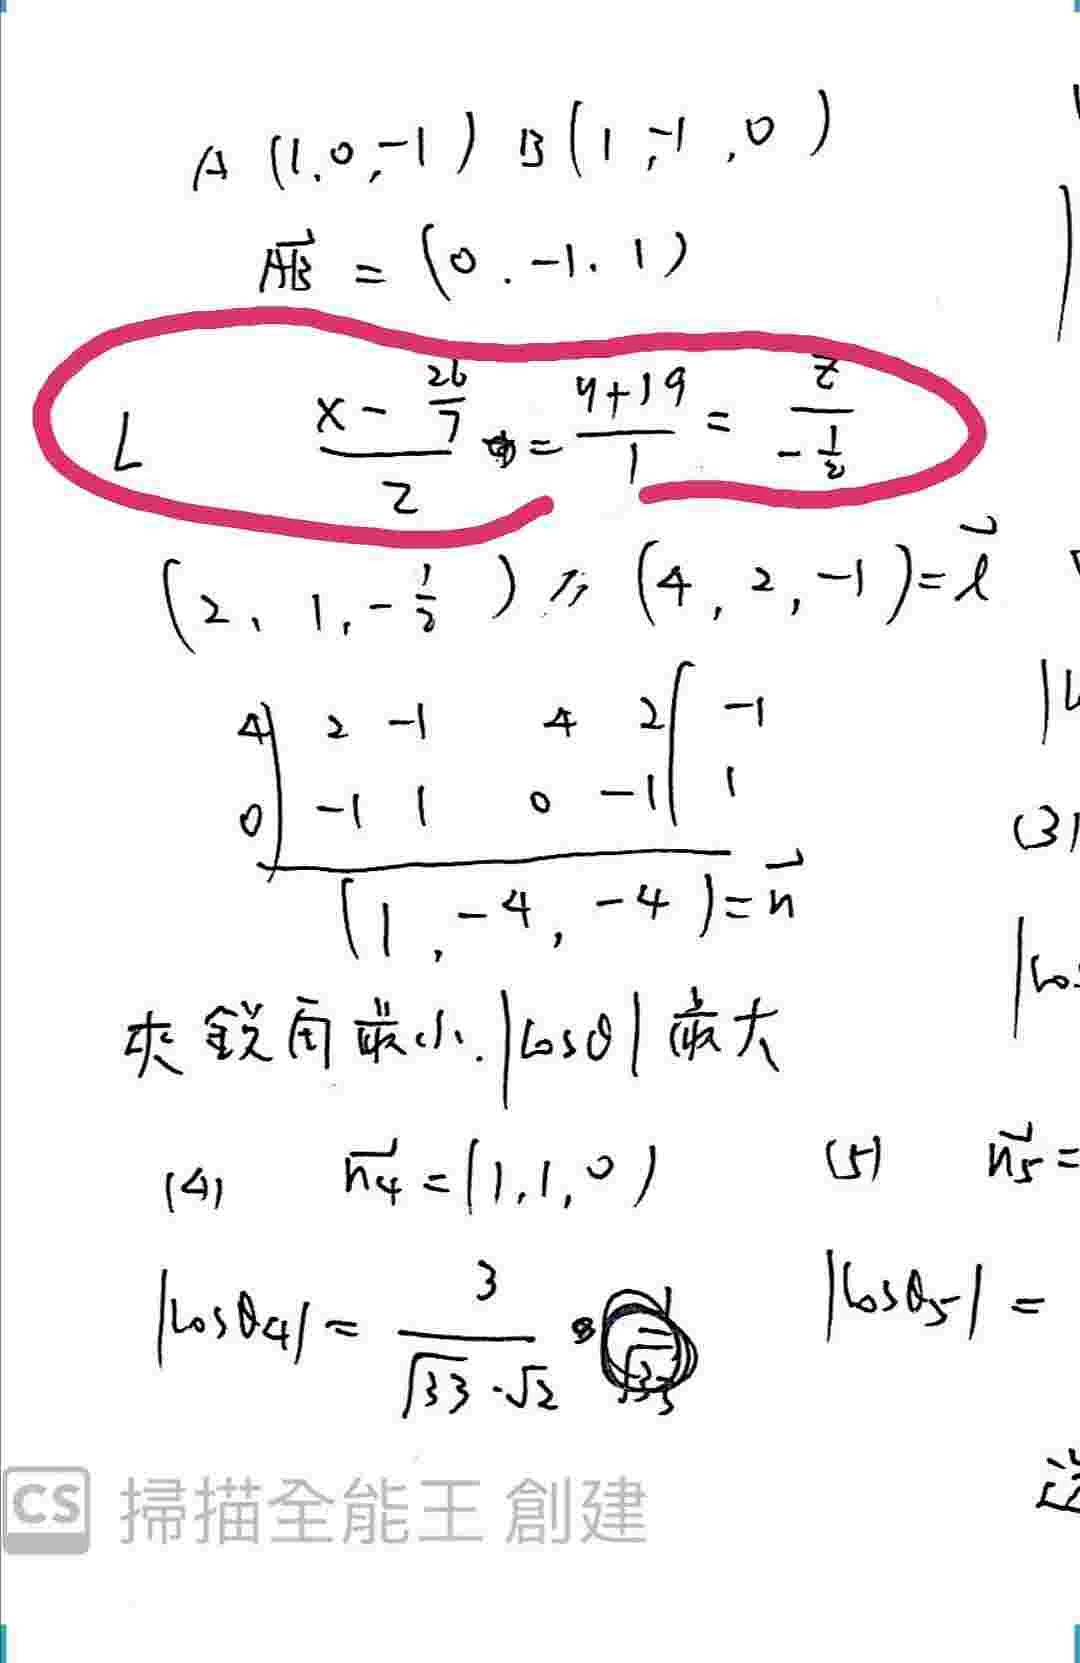 A (1,0,-1) B(1,-1,0)
AB = (0,-1,1)
L x - 26/7 / 2 = y+19 / 1 = z / -1/2
(2, 1, -1/2) // (4, 2, -1) = l
4 | 2 -1 4 2 | -1
0 | -1 1 0 -1 | 1
(1, -4, -4) = n
(3)
夾銳角最小. |cosθ| 最大
|cos
(4) n4 = (1,1,0) (5) n5 =
|cosθ4| = 3 / √33·√2 |cosθ5| =
CS 掃描全能王 創建